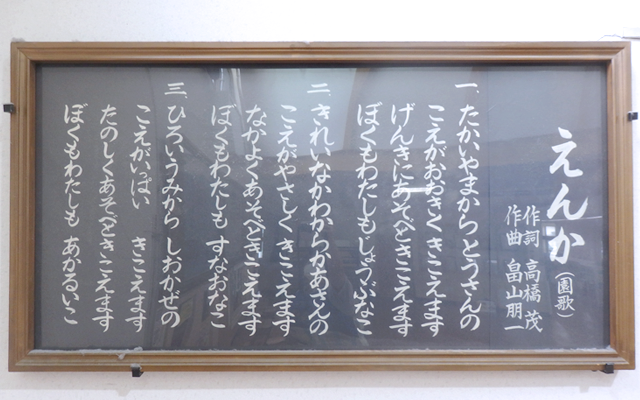 えんか（園歌）
作詞 高橋 茂
作曲 畠山朋一
一、たかいやまから とうさんの
こえがおおきく きこえます
げんきにあそべと きこえます
ぼくもわたしも じょうぶなこ
二、きれいなかわから かあさんの
こえがやさしく きこえます
なかよくあそべと きこえます
ぼくもわたしも すなおなこ
三、ひろいうみから しおかぜの
こえがいっぱい きこえます
たのしくあそべと きこえます
ぼくもわたしも あかるいこ